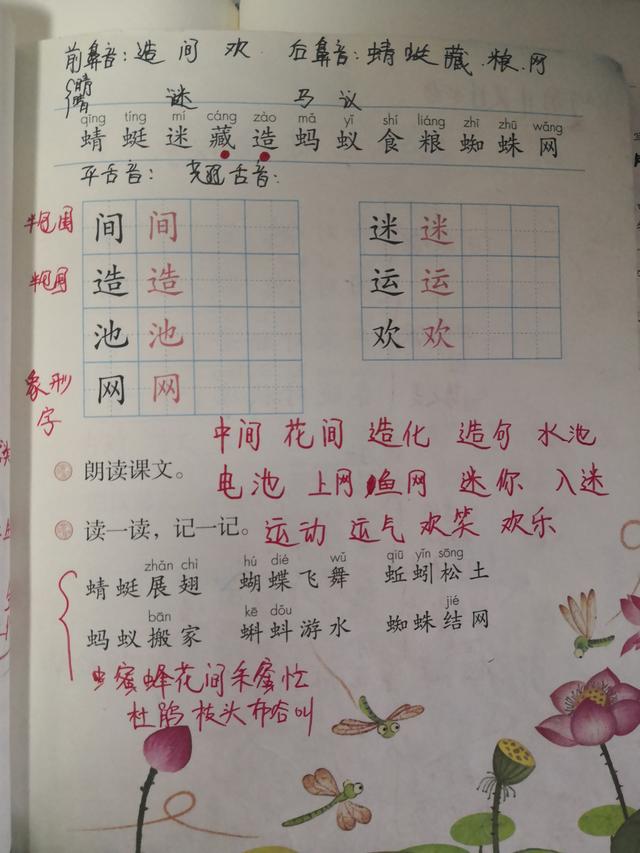 前鼻音：造 间 欢 后鼻音：蜻 蜓 藏 粮 网
谜 马 议
qīng tíng mí cáng zào mǎ yǐ shí liáng zhī zhū wǎng
蜻 蜓 迷 藏 造 蚂 蚁 食 粮 蜘 蛛 网
平舌音： 翘舌音：
半包围 间 间 迷 迷
半包围 造 造 运 运
池 池 欢 欢
象形字 网 网
中间 花间 造化 造句 水池
朗读课文。
电池 上网 鱼网 迷你 入迷
读一读，记一记。 运动 运气 欢笑 欢乐
zhǎn chì hú dié wǔ qiū yǐn sōng
蜻蜓展翅 蝴蝶飞舞 蚯蚓松土
bān kē dǒu jié
蚂蚁搬家 蝌蚪游水 蜘蛛结网
蜜蜂花间采蜜忙
枝头布谷叫